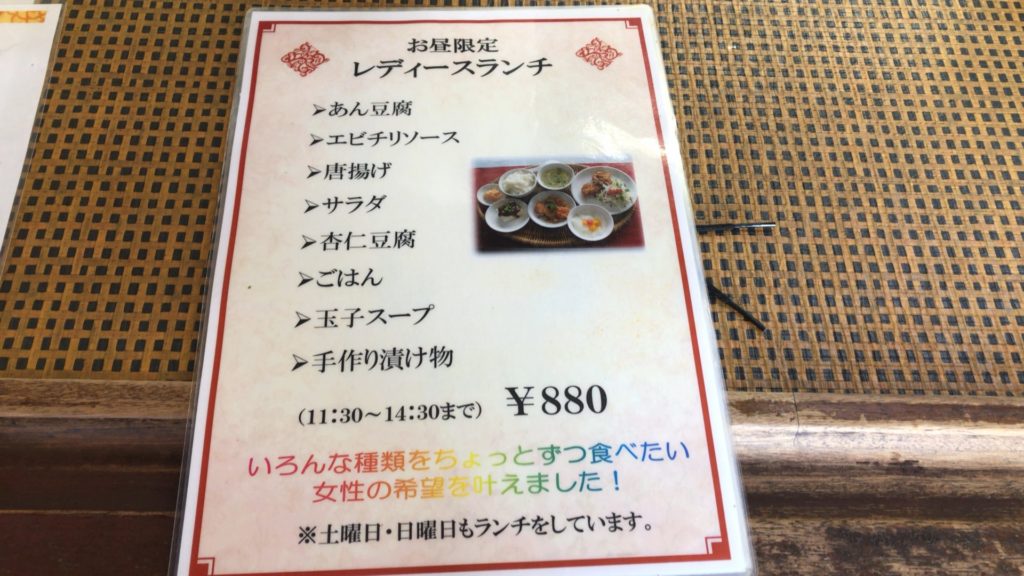 お昼限定
レディースランチ
➢あん豆腐
➢エビチリソース
➢唐揚げ
➢サラダ
➢杏仁豆腐
➢ごはん
➢玉子スープ
➢手作り漬け物
(11:30～14:30まで) ￥880
いろんな種類をちょっとずつ食べたい
女性の希望を叶えました！
※土曜日・日曜日もランチをしています。